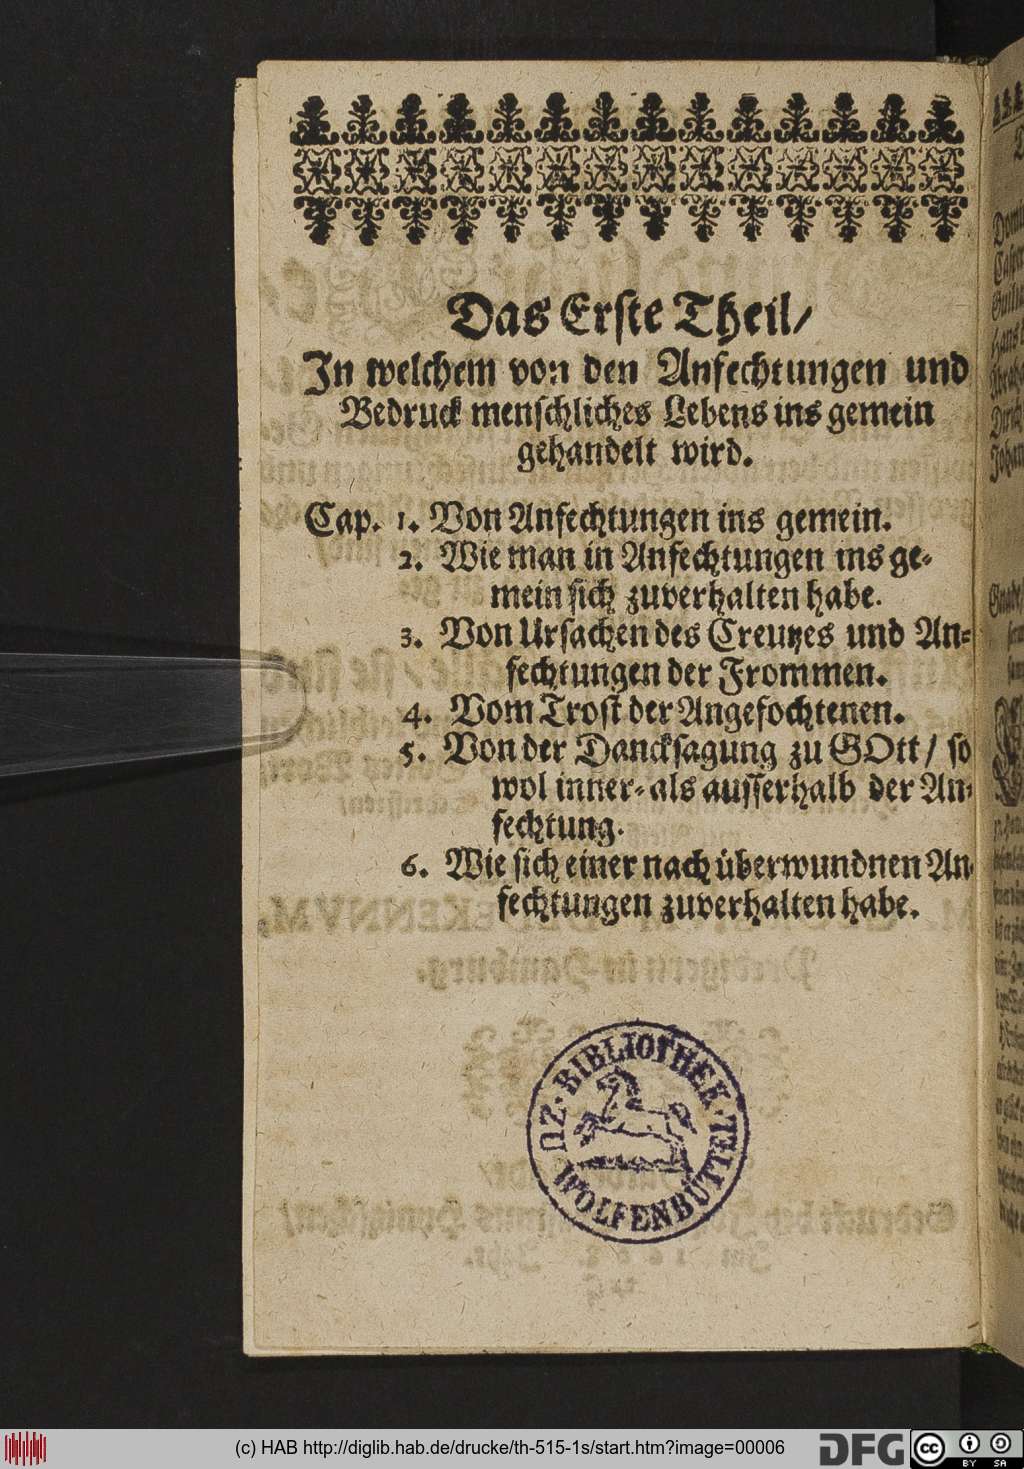 Das Erste Theil/
In welchem von den Anfechtungen und
Bedruck menschliches Lebens ins gemein
gehandelt wird.
Cap. 1. Von Anfechtungen ins gemein.
2. Wie man in Anfechtungen ins ge-
mein sich zuverhalten habe.
3. Von Ursachen des Creutzes und An-
fechtungen der Frommen.
4. Vom Trost der Angefochtenen.
5. Von der Dancksagung zu GOtt / so
wol inner- als ausserhalb der An-
fechtung.
6. Wie sich einer nach überwundnen An-
fechtungen zuverhalten habe.
BIBLIOTHEK
ZU
WOLFENBÜTTEL
(c) HAB http://diglib.hab.de/drucke/th-515-1s/start.htm?image=00006
DFG
cc
BY SA